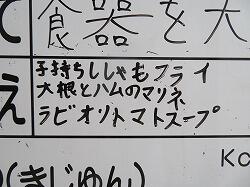 て 食器を大
子持ちししゃもフライ
え 大根とハムのマリネ
ラビオリトマトスープ
(きじゅん)
Ka